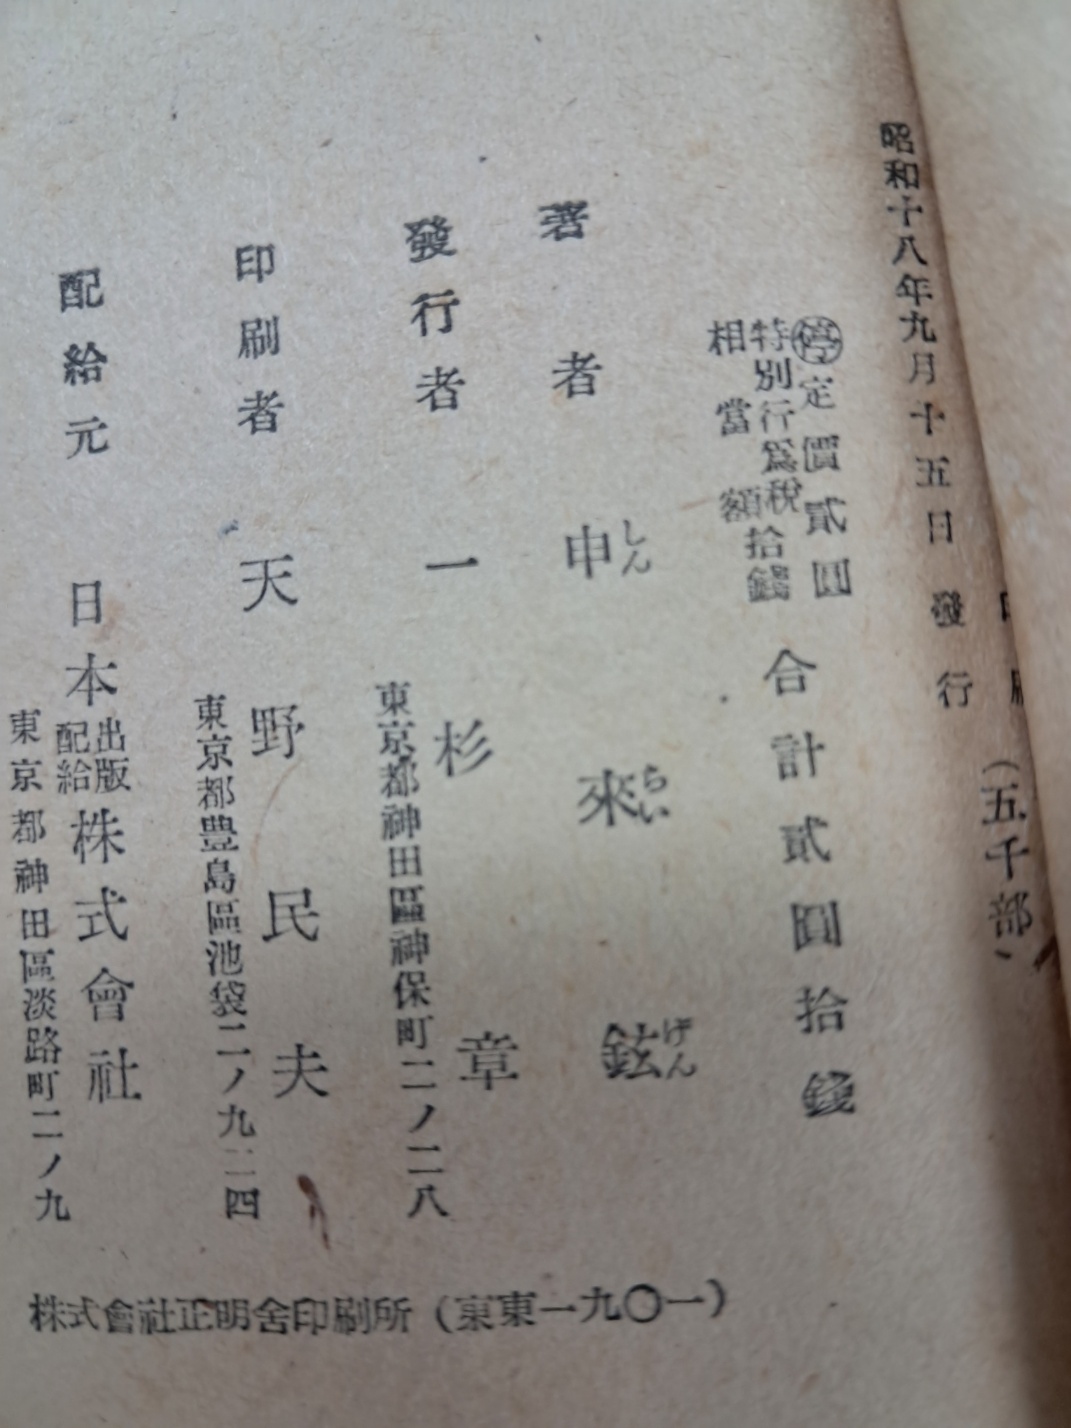 印刷
（五千部）
昭和十八年九月十五日發行
停定價貳圓
特別行爲税
相當額拾錢
合計貳圓拾錢
著者 申來鉉
しん らい げん
發行者 一杉章
東京都神田區神保町二ノ二八
印刷者 天野民夫
東京都豊島區池袋二ノ九二四
配給元 日本出版配給株式會社
東京都神田區淡路町二ノ九
株式會社正明舍印刷所（東東一九〇一）